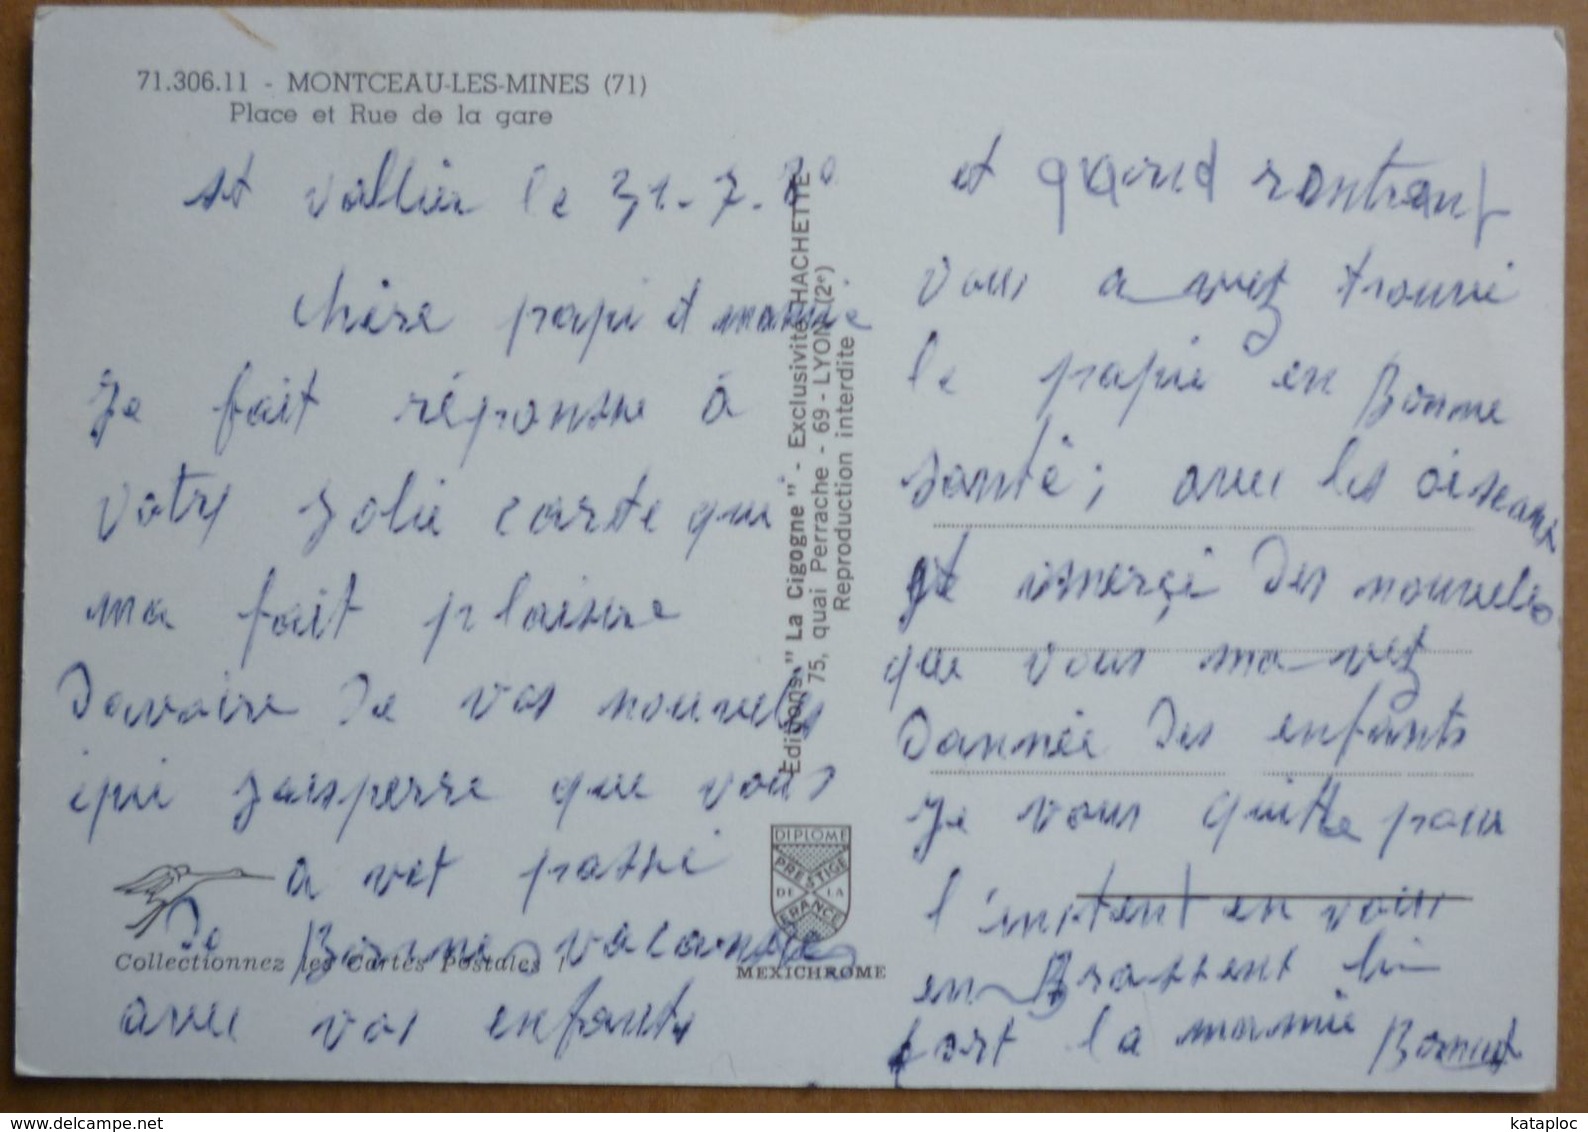 71.306.11 - MONTCEAU-LES-MINES (71)
Place et Rue de la gare
st vallier le 31-7-80
chère papi et mamie
Je fait réponsse à
votre jolie carte qui
ma fait plaisire
Davoire De vos nouvels
ipui jaisperre que vous
a vet passé
De Bonne vacances
avec vos enfants
Editions " La Cigogne " - Exclusivité HACHETTE
75, quai Perrache - 69 - LYON (2e)
Reproduction interdite
DIPLOME
PRESTIGE
DE LA
FRANCE
MEXICHROME
Collectionnez les Cartes Postales !
et quand rentrant
vous a vez trouvé
le papie en Bonne
santé; avec les oiseaux
Je vs merçi Des nouvelles
que vous ma vez
Donnée Des enfants
Je vous quitte pour
l'instent en vous
en Brassent bin
fort la mamie Bonnet
www.delcampe.net
kataploc